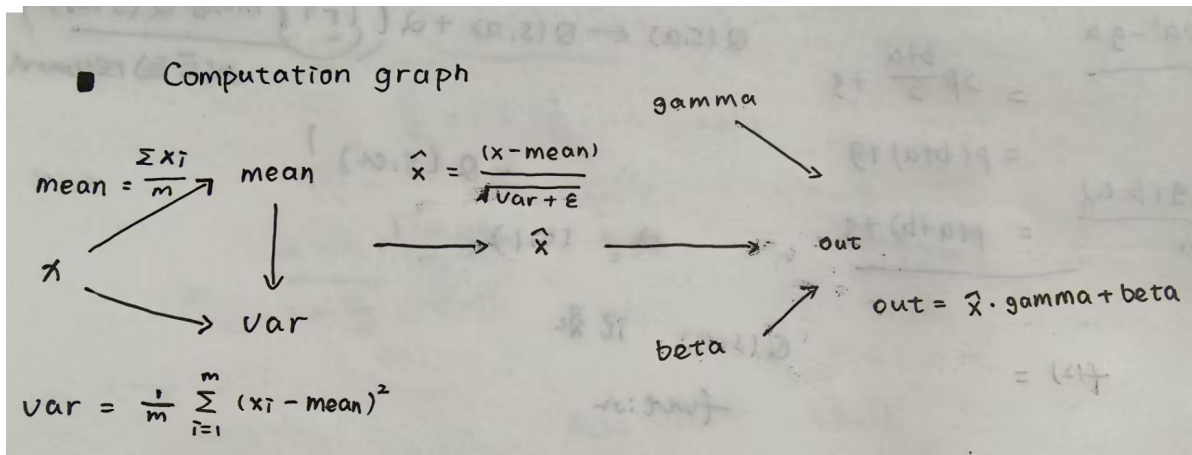 Computation graph
gamma
mean = Σxi/m
mean
x̂ = (x-mean)/√(var+ε)
x
x̂
out
var
out = x̂·gamma+beta
beta
var = 1/m Σ_{i=1}^{m} (xi-mean)²